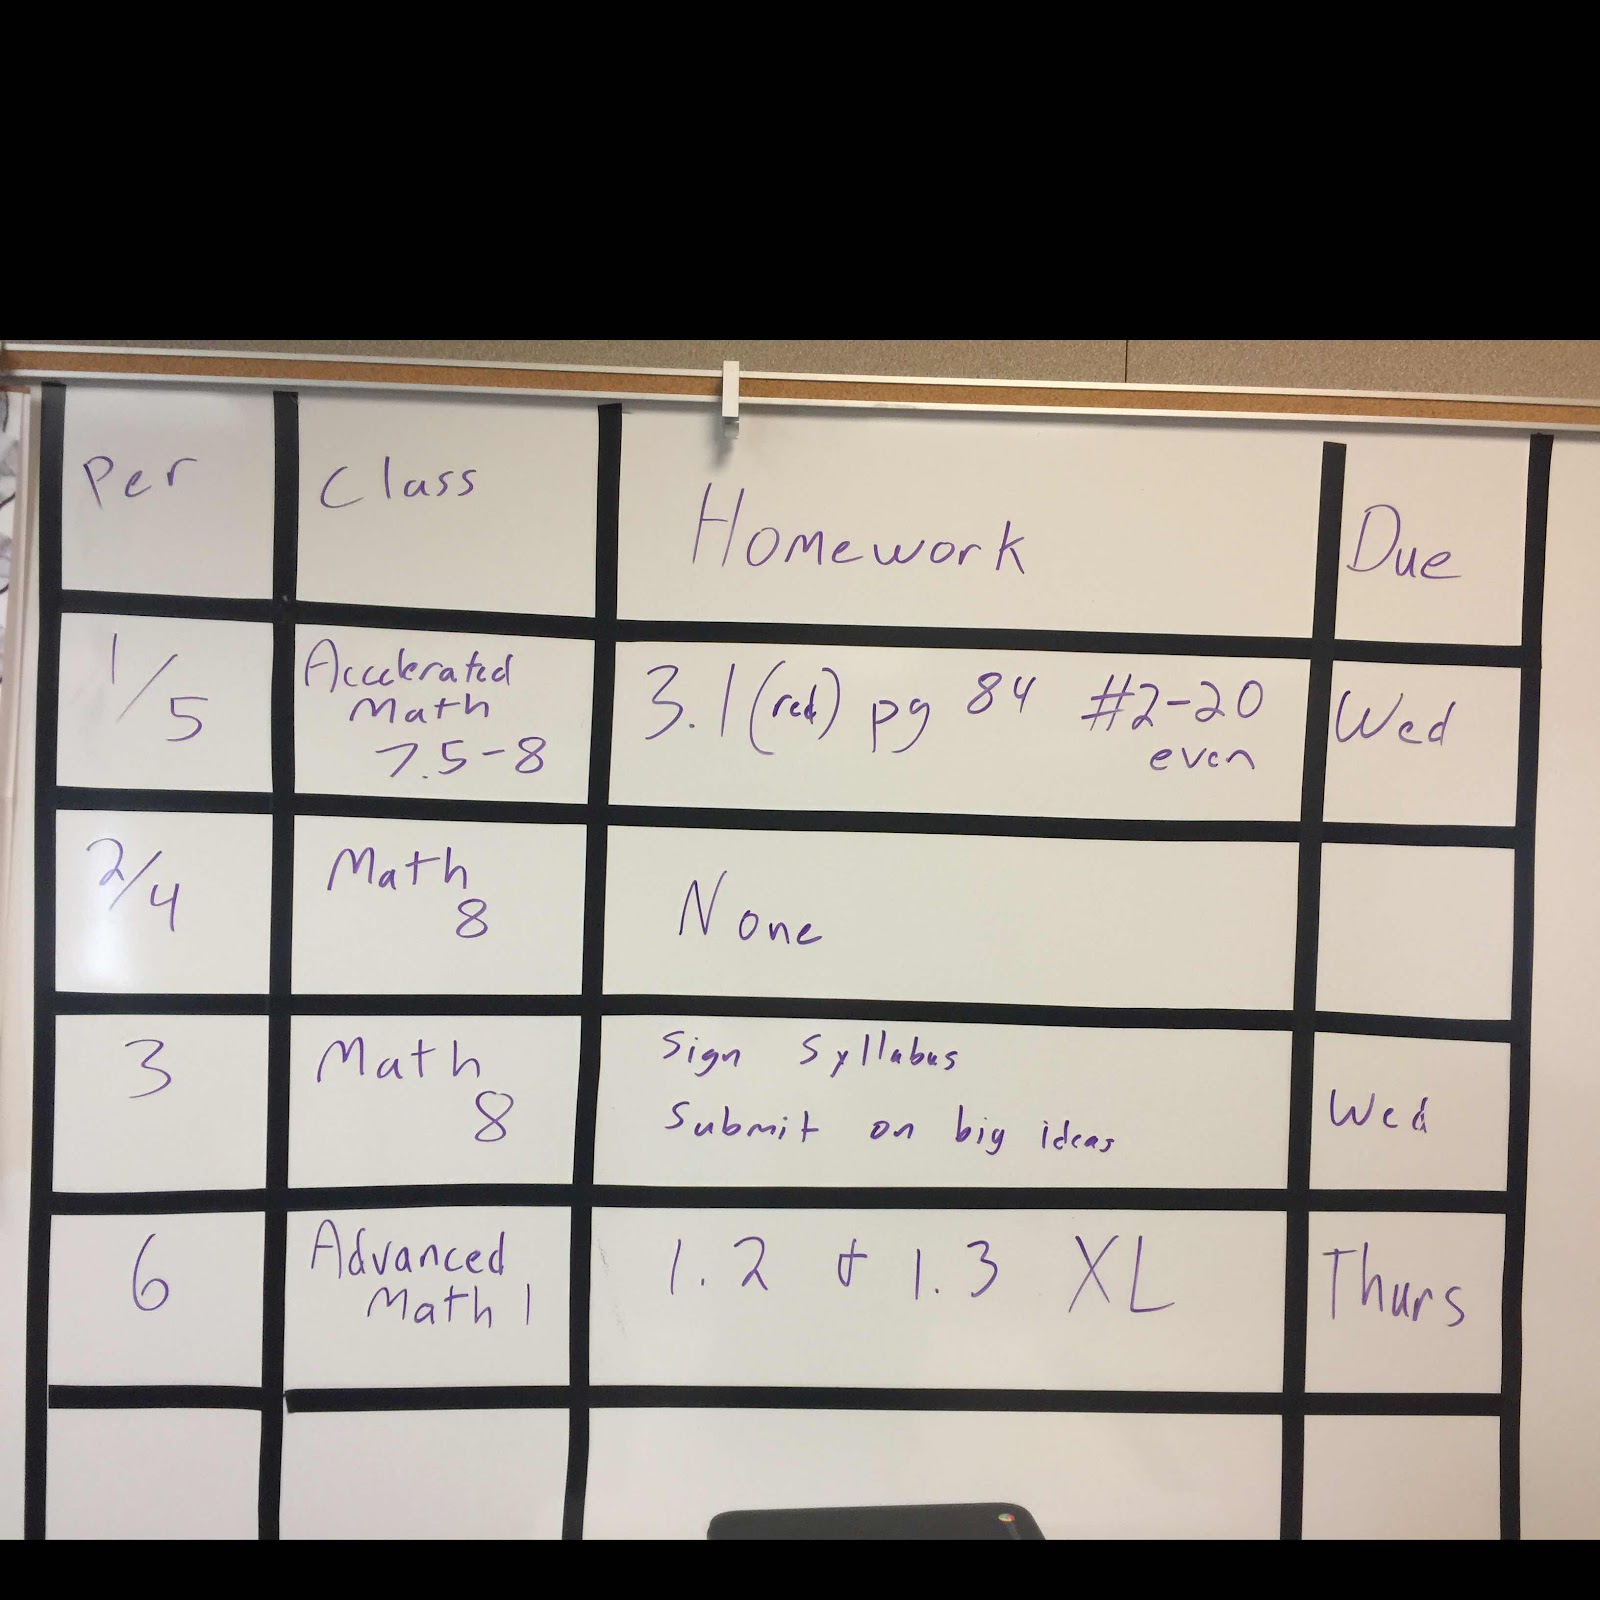 Per Class Homework Due
1/5 Accelerated Math 7.5-8 3.1 (red) pg 84 #2-20 even Wed
2/4 Math 8 None
3 Math 8 Sign Syllabus Submit on big ideas Wed
6 Advanced Math 1 1.2 & 1.3 XL Thurs